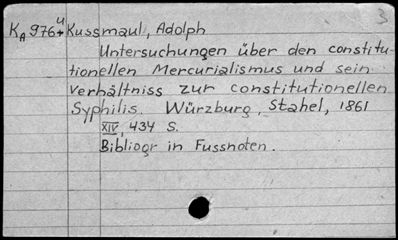 3
KA 9764 Kussmaul, Adolph
Untersuchungen über den constitu-
tionellen Mercurialismus und sein
Verhältniss zur constitutionellen
Syphilis. Würzburg, Stahel, 1861
XIV, 434 S.
Bibliogr in Fussnoten.